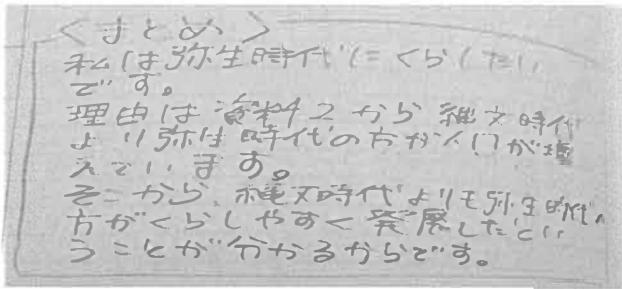 ＜まとめ＞
私は弥生時代にくらしたい
です。
理由は資料2から縄文時代
より弥生時代の方が人口が増
えています。
そこから、縄文時代よりも弥生時代の
方がくらしやすく発展したとい
うことが分かるからです。